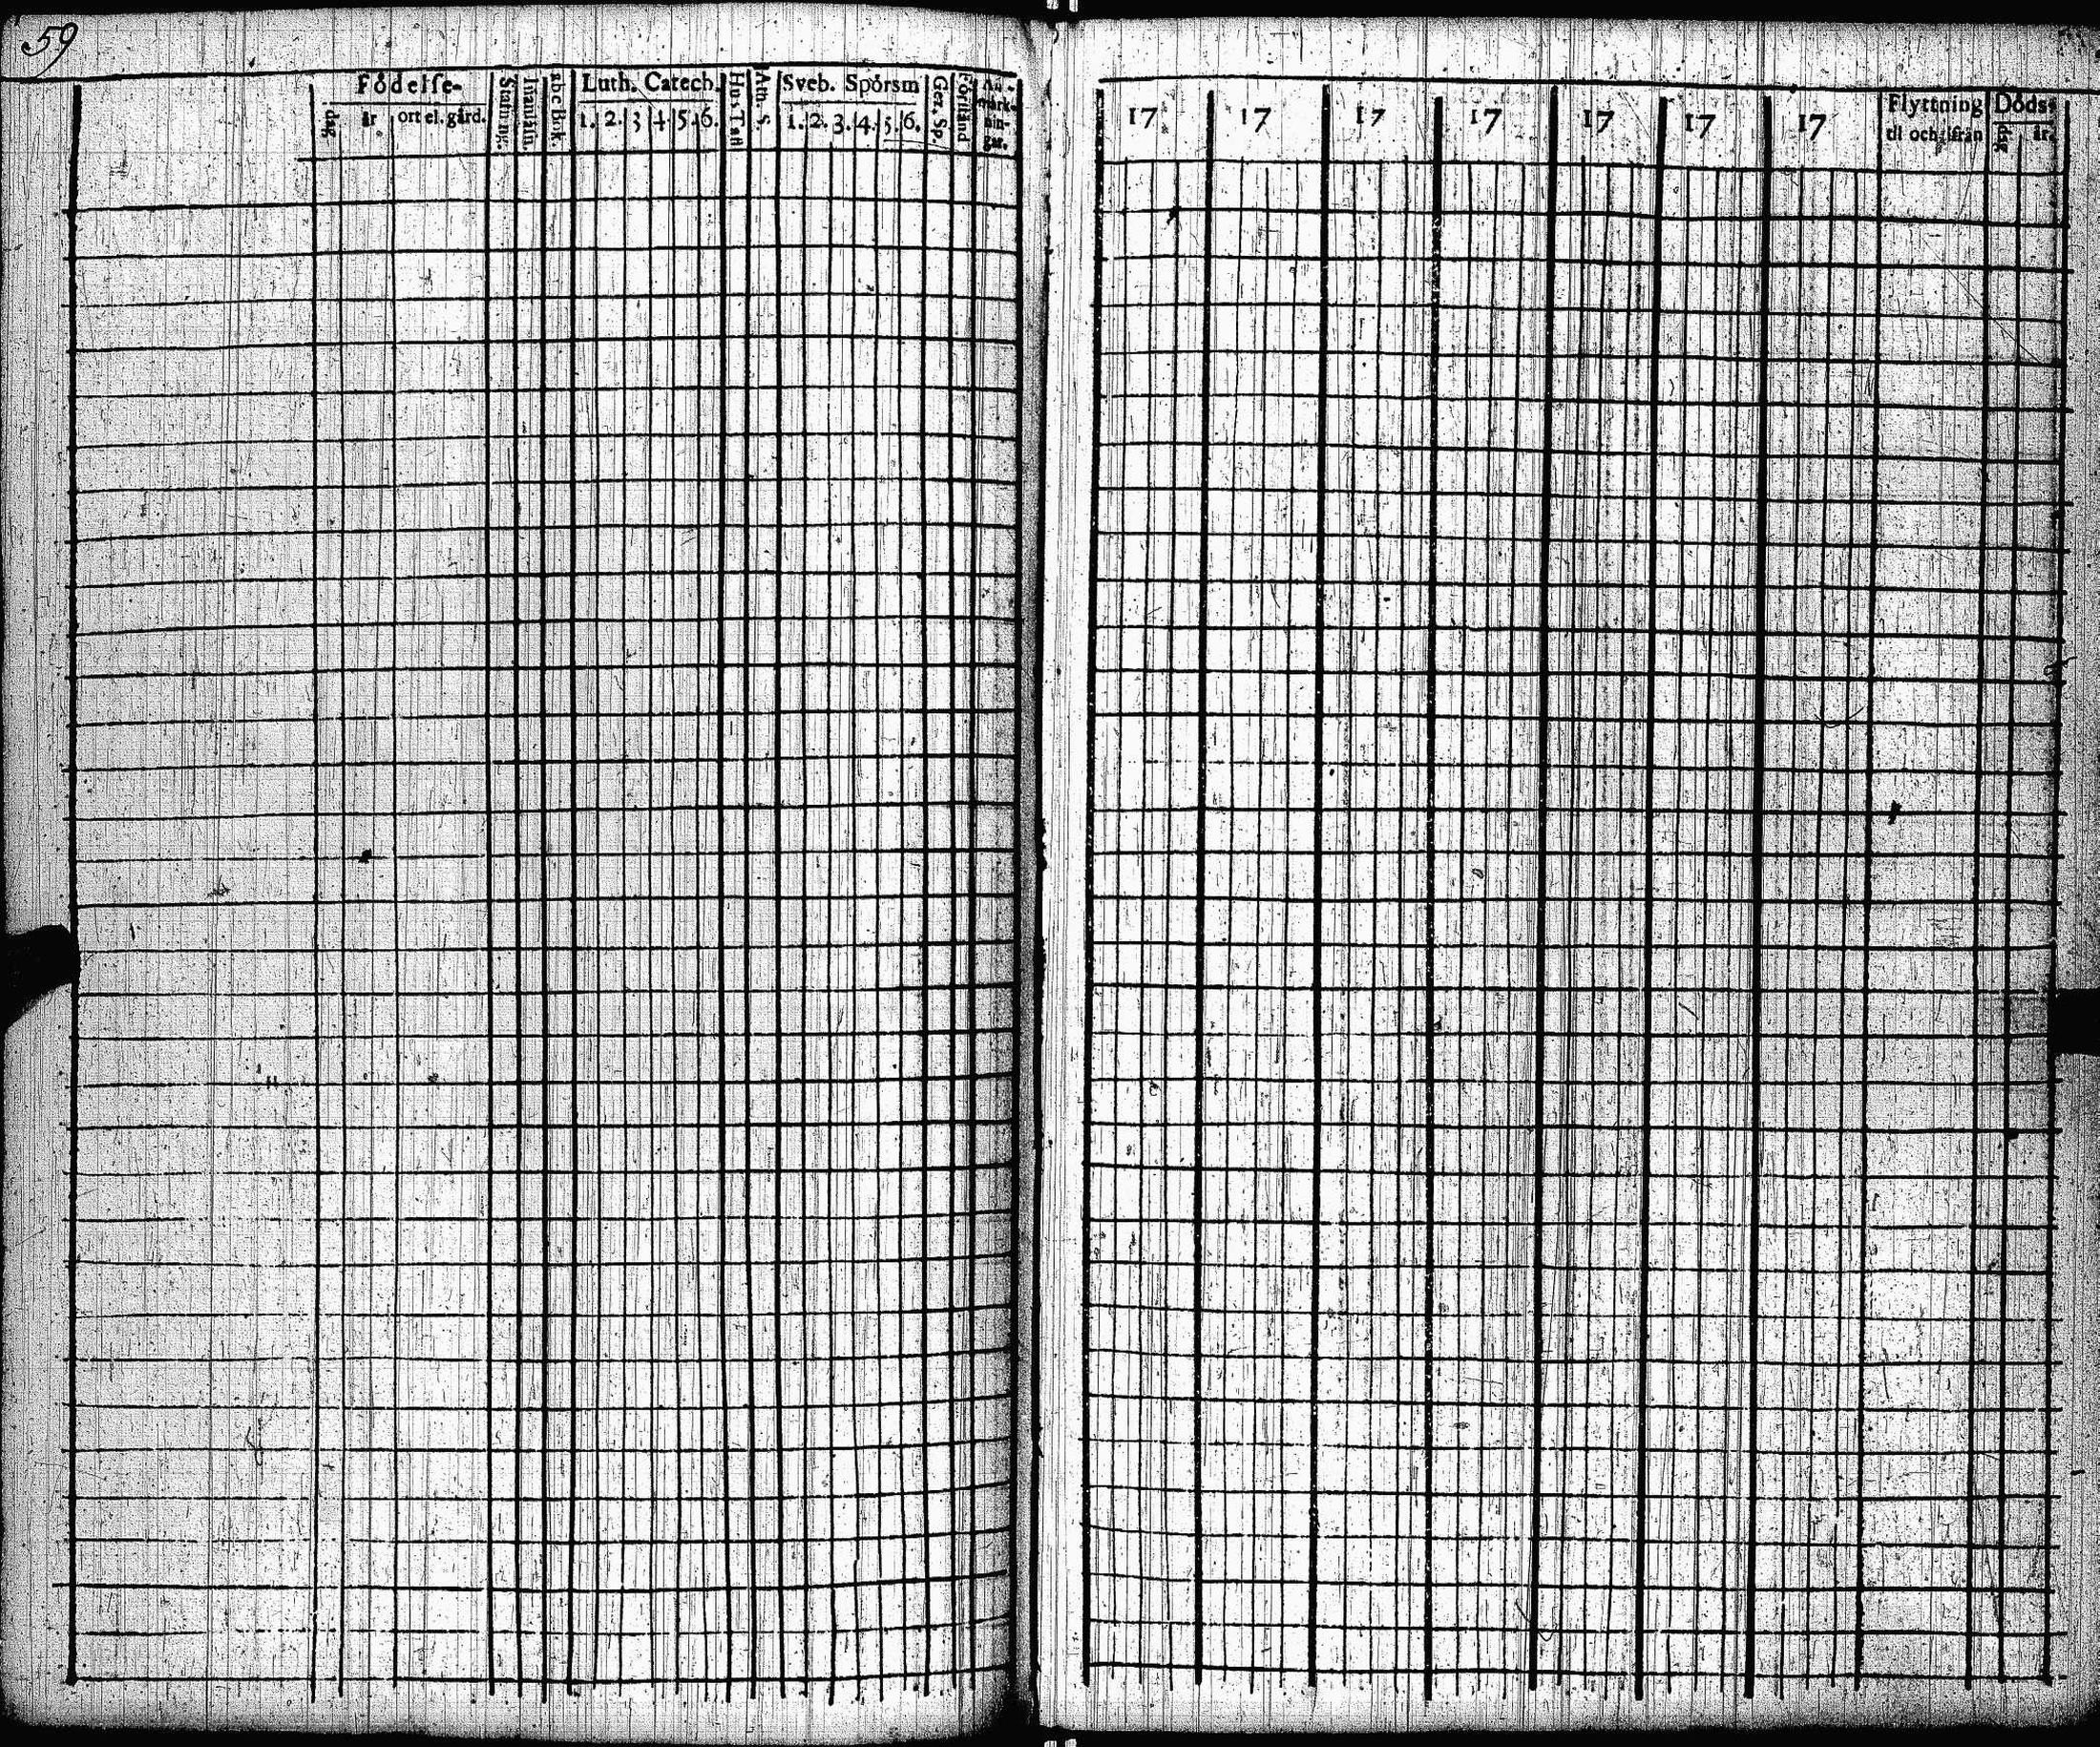 59
Födelse-
dag
år
ort el. gård.
Stafning.
Innanläsn.
abc Bok.
Luth. Catech.
1. 2. 3 4. 5. 6.
Hus Tafl
Ath. S.
Sveb. Spörsm
1. 2. 3. 4. 5. 6.
Ger. Sp.
Förstånd
An-
märk-
nin-
gar.
17 17 17 17 17 17 17
Flyttning
til och ifrån
Döds-
dag
år.